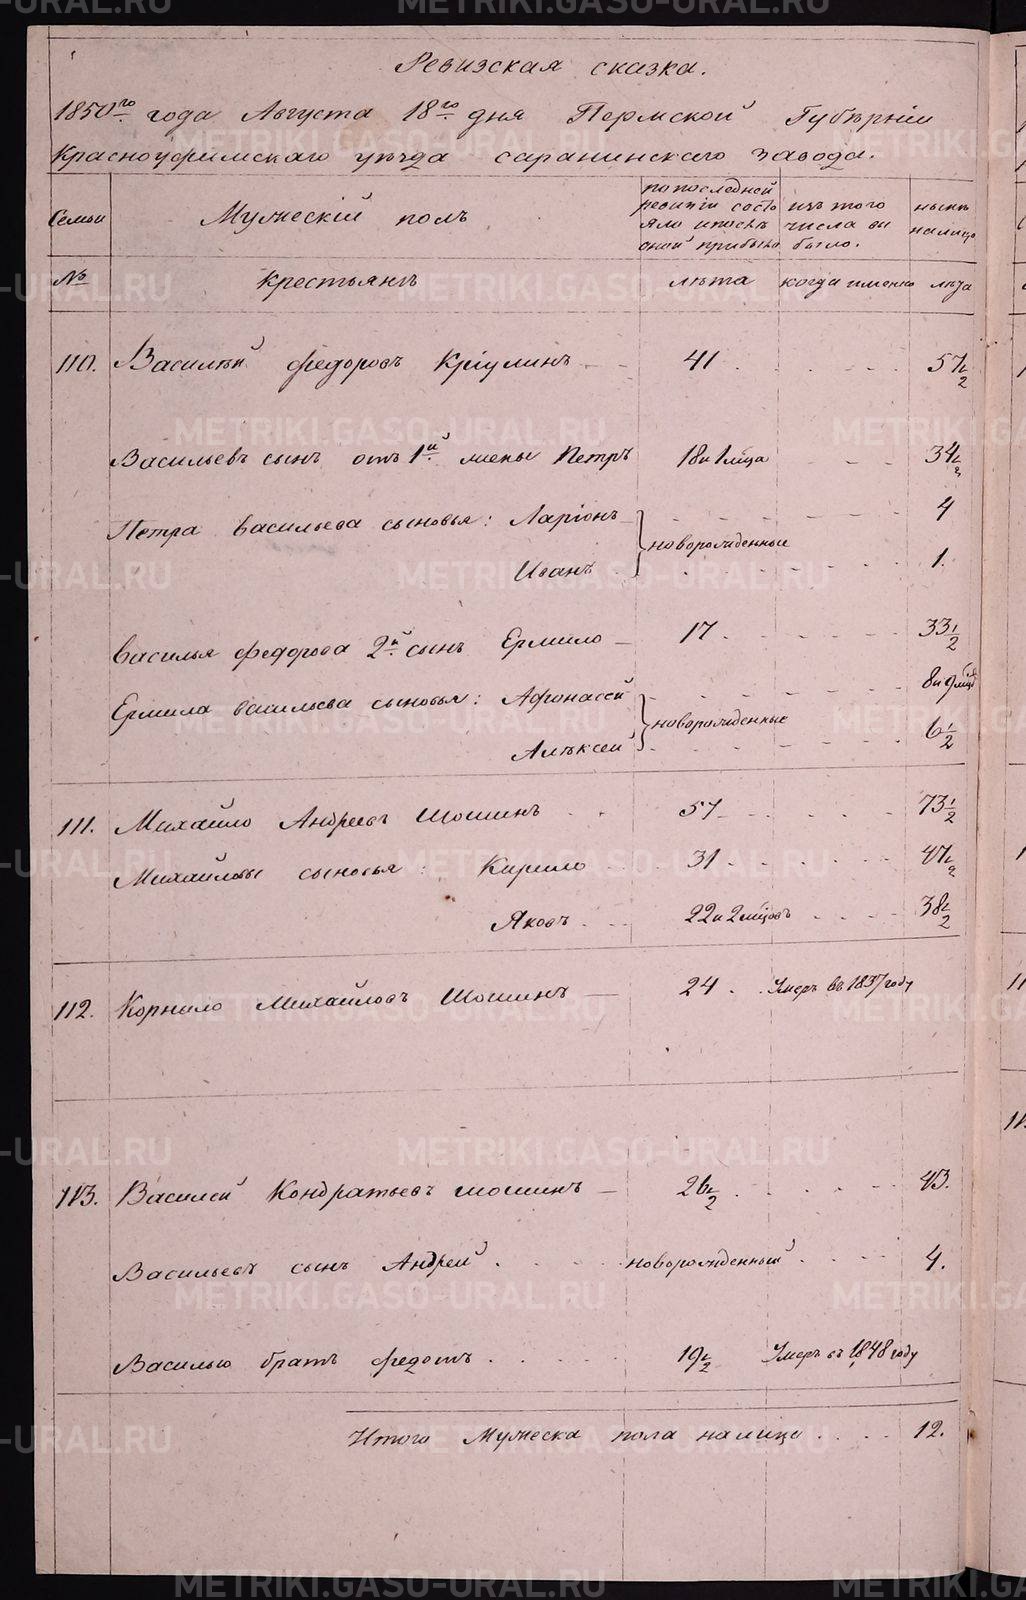 Ревизская сказка.
1850го года Августа 18го дня Пермской Губерніи
Красноуфимскаго уѣзда саранинскаго завода.
Семьи
Мужескій полъ
по последней ревизіи состояло и послѣ оной прибыло
изъ того числа выбыло.
нынѣ налицо
№
крестьянъ
лѣта
когда именно
лѣта
110. Василій федоровъ Кріулинъ 41 57 1/2
Васильевъ сынъ отъ 1й жены Петръ 18 и 1 м͠ца 34 1/2
Петра васильева сыновья: Ларіонъ новорожденные 4
Иванъ 1.
Василья федорова 2й сынъ Ермило 17 33 1/2
Ермила васильева сыновья: Афонасей новорожденные 8 и 9 м͠цъ
Алѣксей 6 1/2
111. Михайло Андреевъ Шошинъ 57 73 1/2
Михайловы сыновья: Кирило 31 47 1/2
Яковъ 22 и 2 м͠цовъ 38 1/2
112. Корнило Михайловъ Шошинъ 24 Умеръ въ 1837 году
113. Василей Кондратьевъ шошинъ 26 1/2 43.
Васильевъ сынъ Андрей новорожденный 4.
Василью братъ федотъ 19 1/2 Умеръ въ 1848 году
Итого Мужеска пола налицо 12.
METRIKI.GASO-URAL.RU